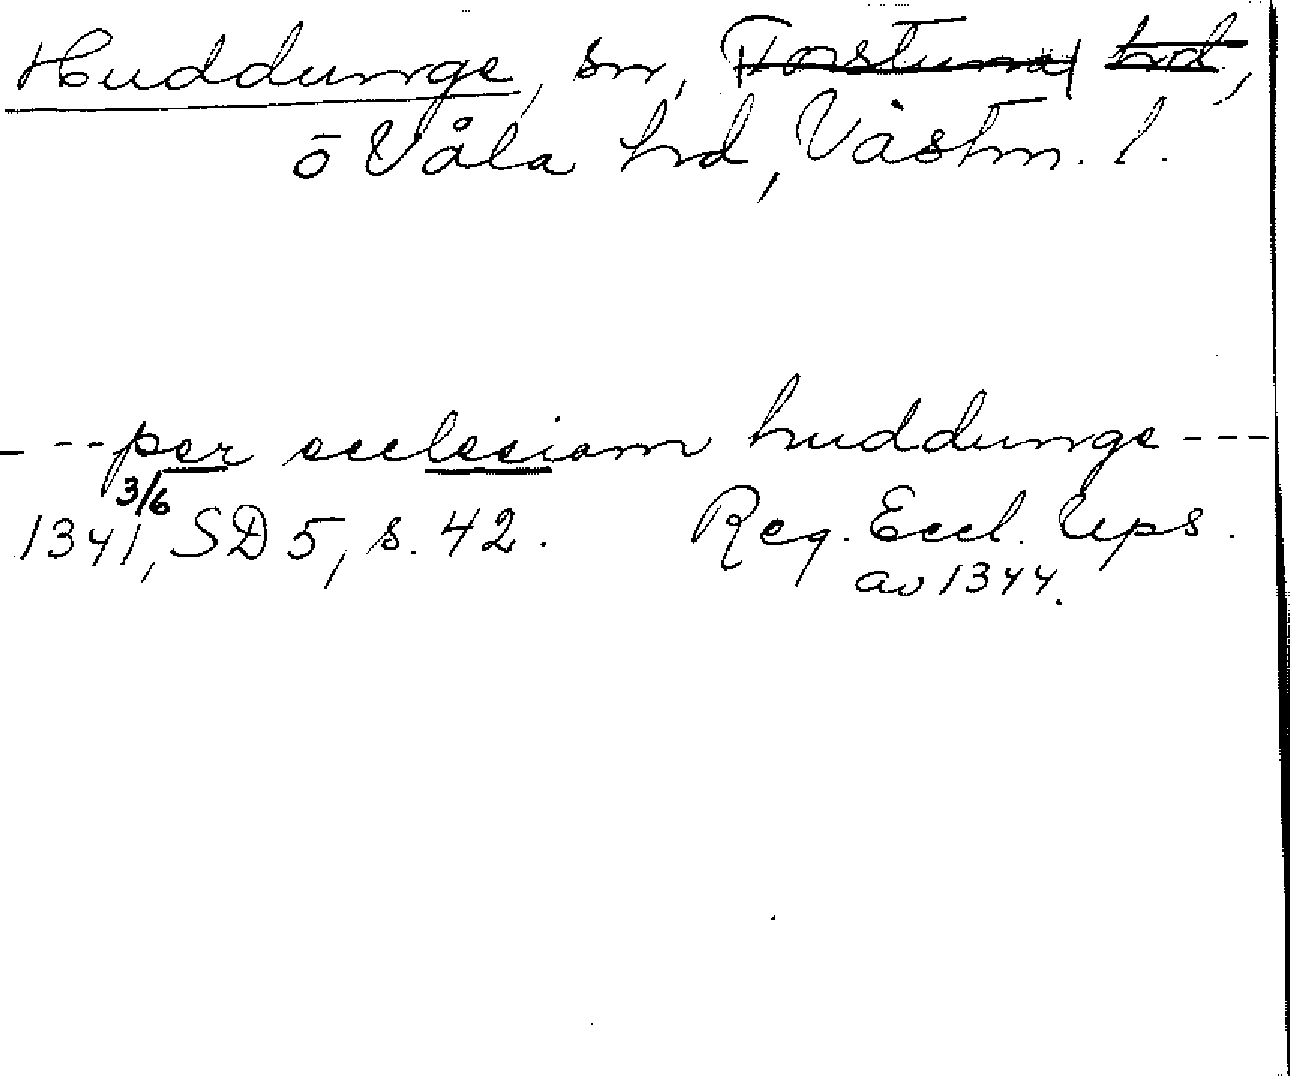 Huddunge, sn, Torstuna hd,
ö Våla hd, Västm. l.
---per ecclesiam huddunge---
3/6
1341, SD 5, s. 42. Reg. Eccl. Ups.
av 1344.